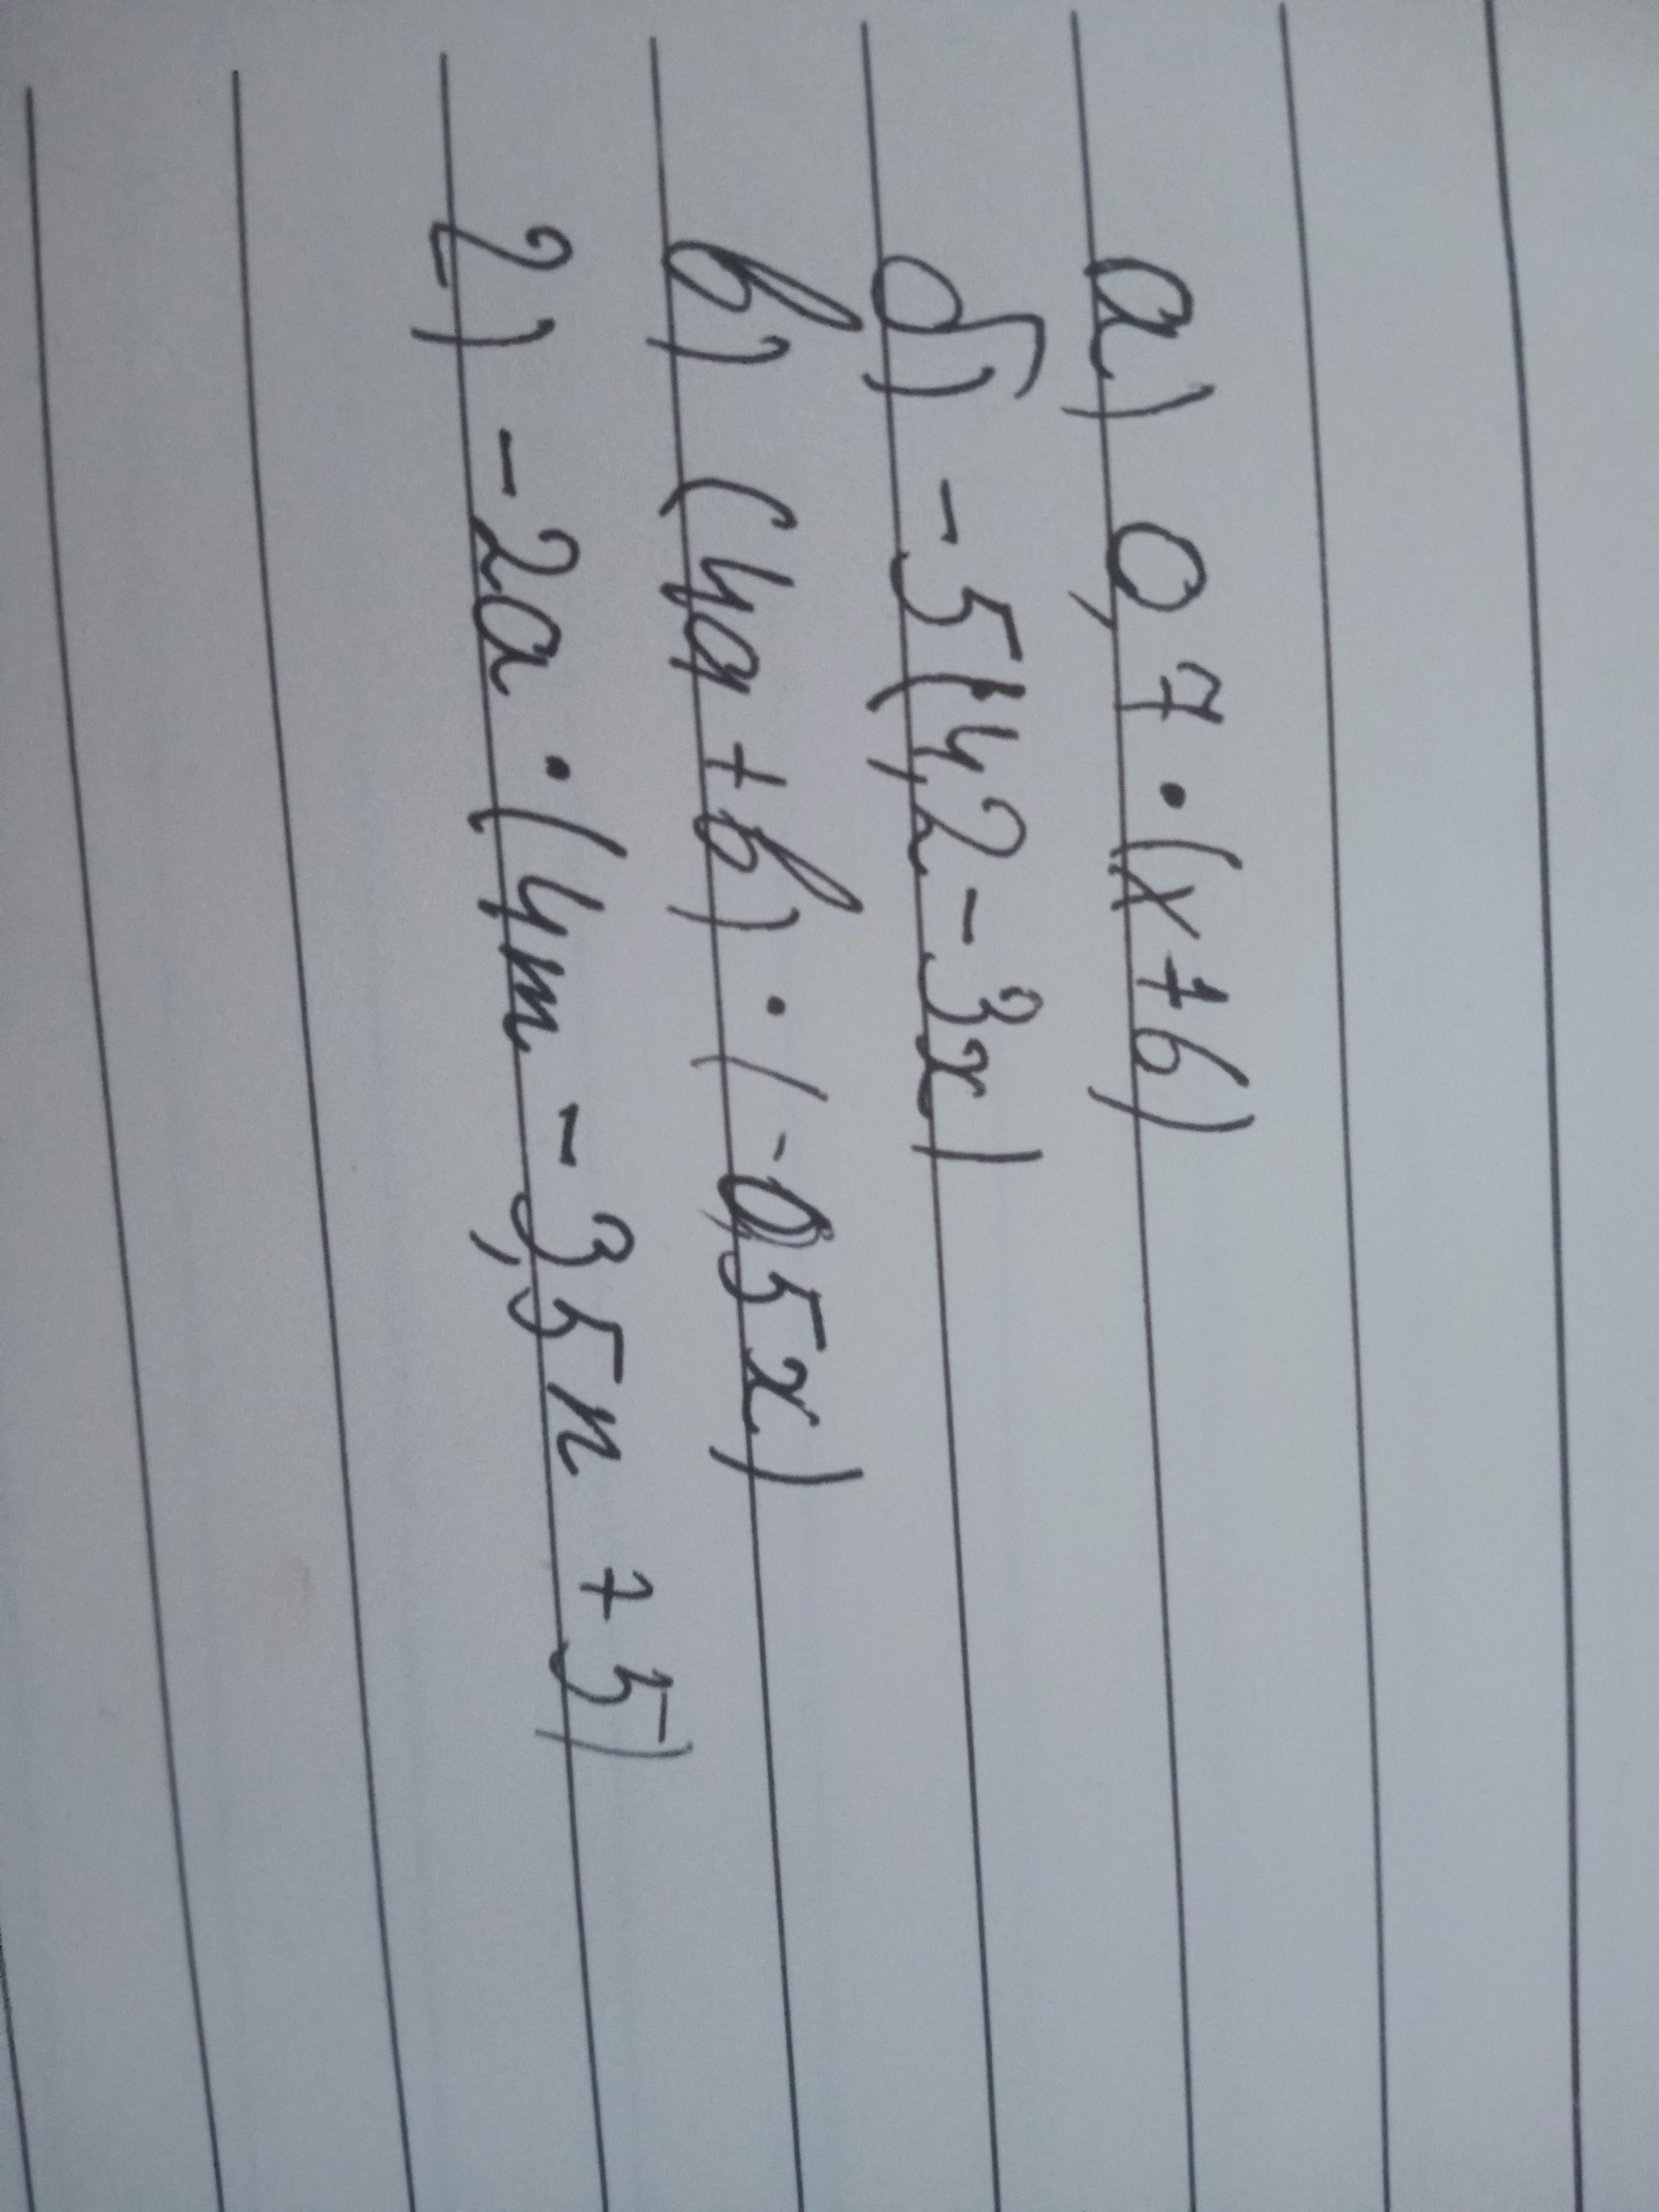 а) 0,7 · (x + 6)
б) -5(4,2 - 3x)
в) (4a + b) · (-0,5x)
г) -2a · (4m - 3,5n + 5)